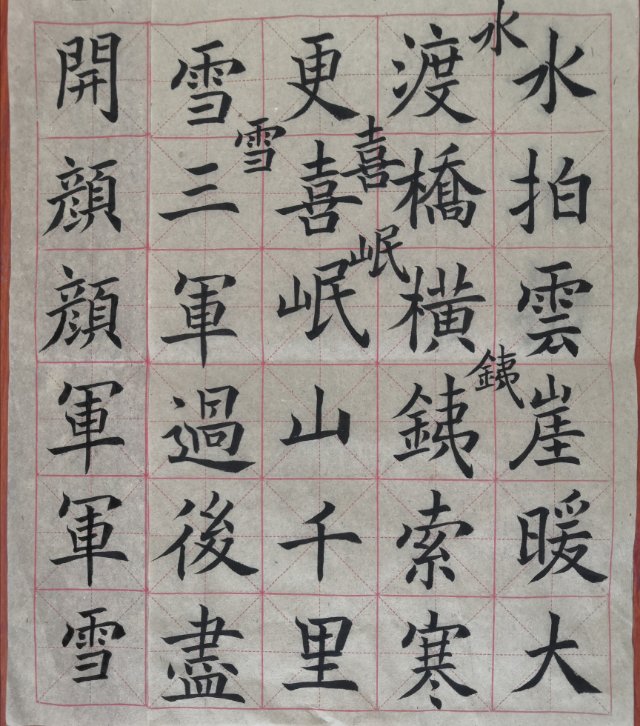 水拍雲崖暖大
水銕
渡橋横銕索寒
喜岷
更喜岷山千里
雪
雪三軍過後盡
開顔顔軍軍雪